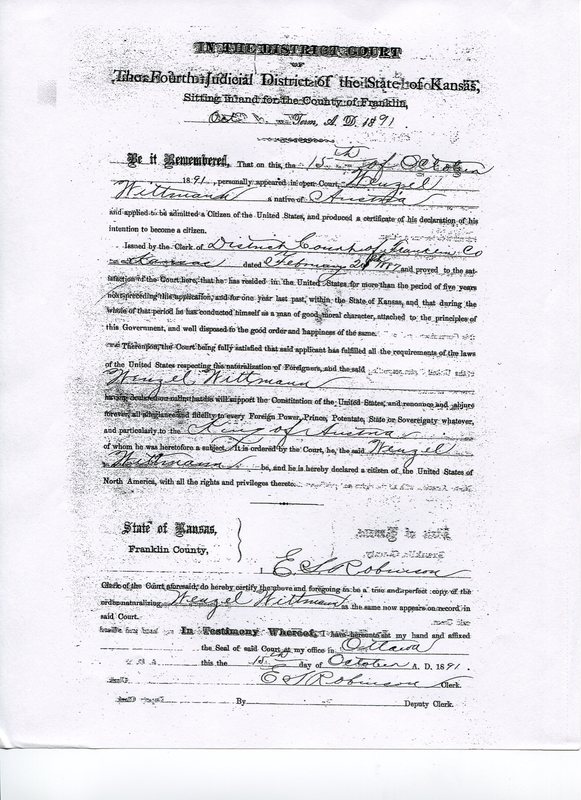 IN THE DISTRICT COURT
OF
The Fourth Judicial District of the State of Kansas,
Sitting in and for the County of Franklin,
Oct. Term, A. D. 1891
Be it Remembered, That on this, the 15th of October
1891, personally appeared in open Court, Wenzel
Wittmann a native of Austria
and applied to be admitted a Citizen of the United States, and produced a certificate of his declaration of his
intention to become a citizen.
Issued by the Clerk of District Court of Franklin Co
Kansas dated February and proved to the sat-
isfaction of the Court here, that he has resided in the United States for more than the period of five years
next preceding this application, and for one year last past, within the State of Kansas, and that during the
whole of that period he has conducted himself as a man of good moral character, attached to the principles of
this Government, and well disposed to the good order and happiness of the same.
Thereupon, the Court being fully satisfied that said applicant has fulfilled all the requirements of the laws
of the United States respecting the naturalization of Foreigners, and the said
Wenzel Wittmann
having declared on oath that he will support the Constitution of the United States, and renounce and abjure
forever, all allegiance and fidelity to every Foreign Power, Prince, Potentate, State or Sovereignty whatever,
and particularly to the King of Austria
of whom he was heretofore a subject. It is ordered by the Court, he, the said Wenzel
Wittmann be, and he is hereby declared a citizen of the United States of
North America, with all the rights and privileges thereto.
State of Kansas,
Franklin County,
E S Robinson
Clerk of the Court aforesaid, do hereby certify the above and foregoing to be a true and perfect copy of the
order naturalizing Wenzel Wittmann as the same now appears on record in
said Court.
In Testimony Whereof, I have hereunto set my hand and affixed
the Seal of said Court at my office in Ottawa
this the 15th day of October A. D. 1891.
E S Robinson Clerk.
By Deputy Clerk.